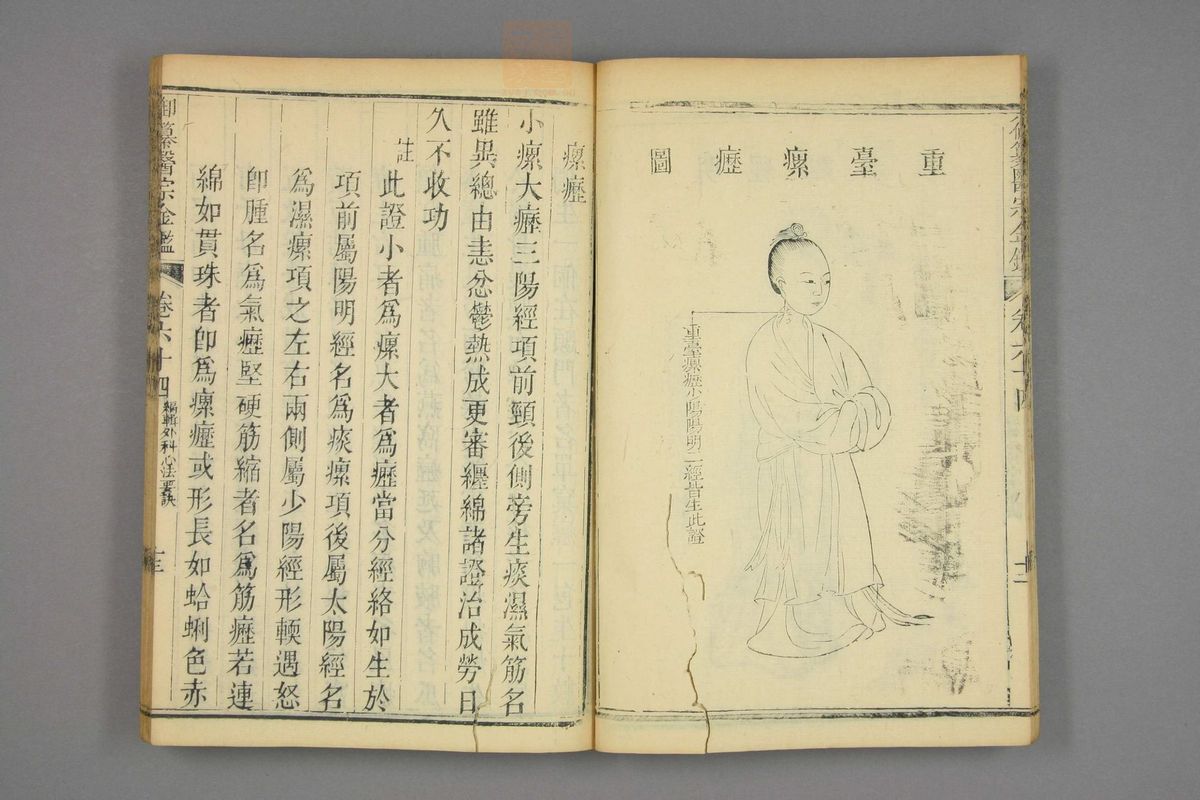 重臺瘰癧圖
重臺瘰癧少陽陽明二經皆生此證
卷六十四
十二
瘰癧
小瘰大癧三陽經項前頸後側旁生痰濕氣筋名
雖異總由恚忿鬱熱成更審纒綿諸證治成勞日
久不收功
註此證小者為瘰大者為癧當分經絡如生於
項前屬陽明經名為痰瘰項後屬太陽經名
為濕瘰項之左右兩側屬少陽經形輭遇怒
卽腫名為氣癧堅硬筋縮者名為筋癧若連
綿如貫珠者卽為瘰癧或形長如蛤蜊色赤
御纂醫宗金鑑
卷六十四
編輯外科心法要訣
十三